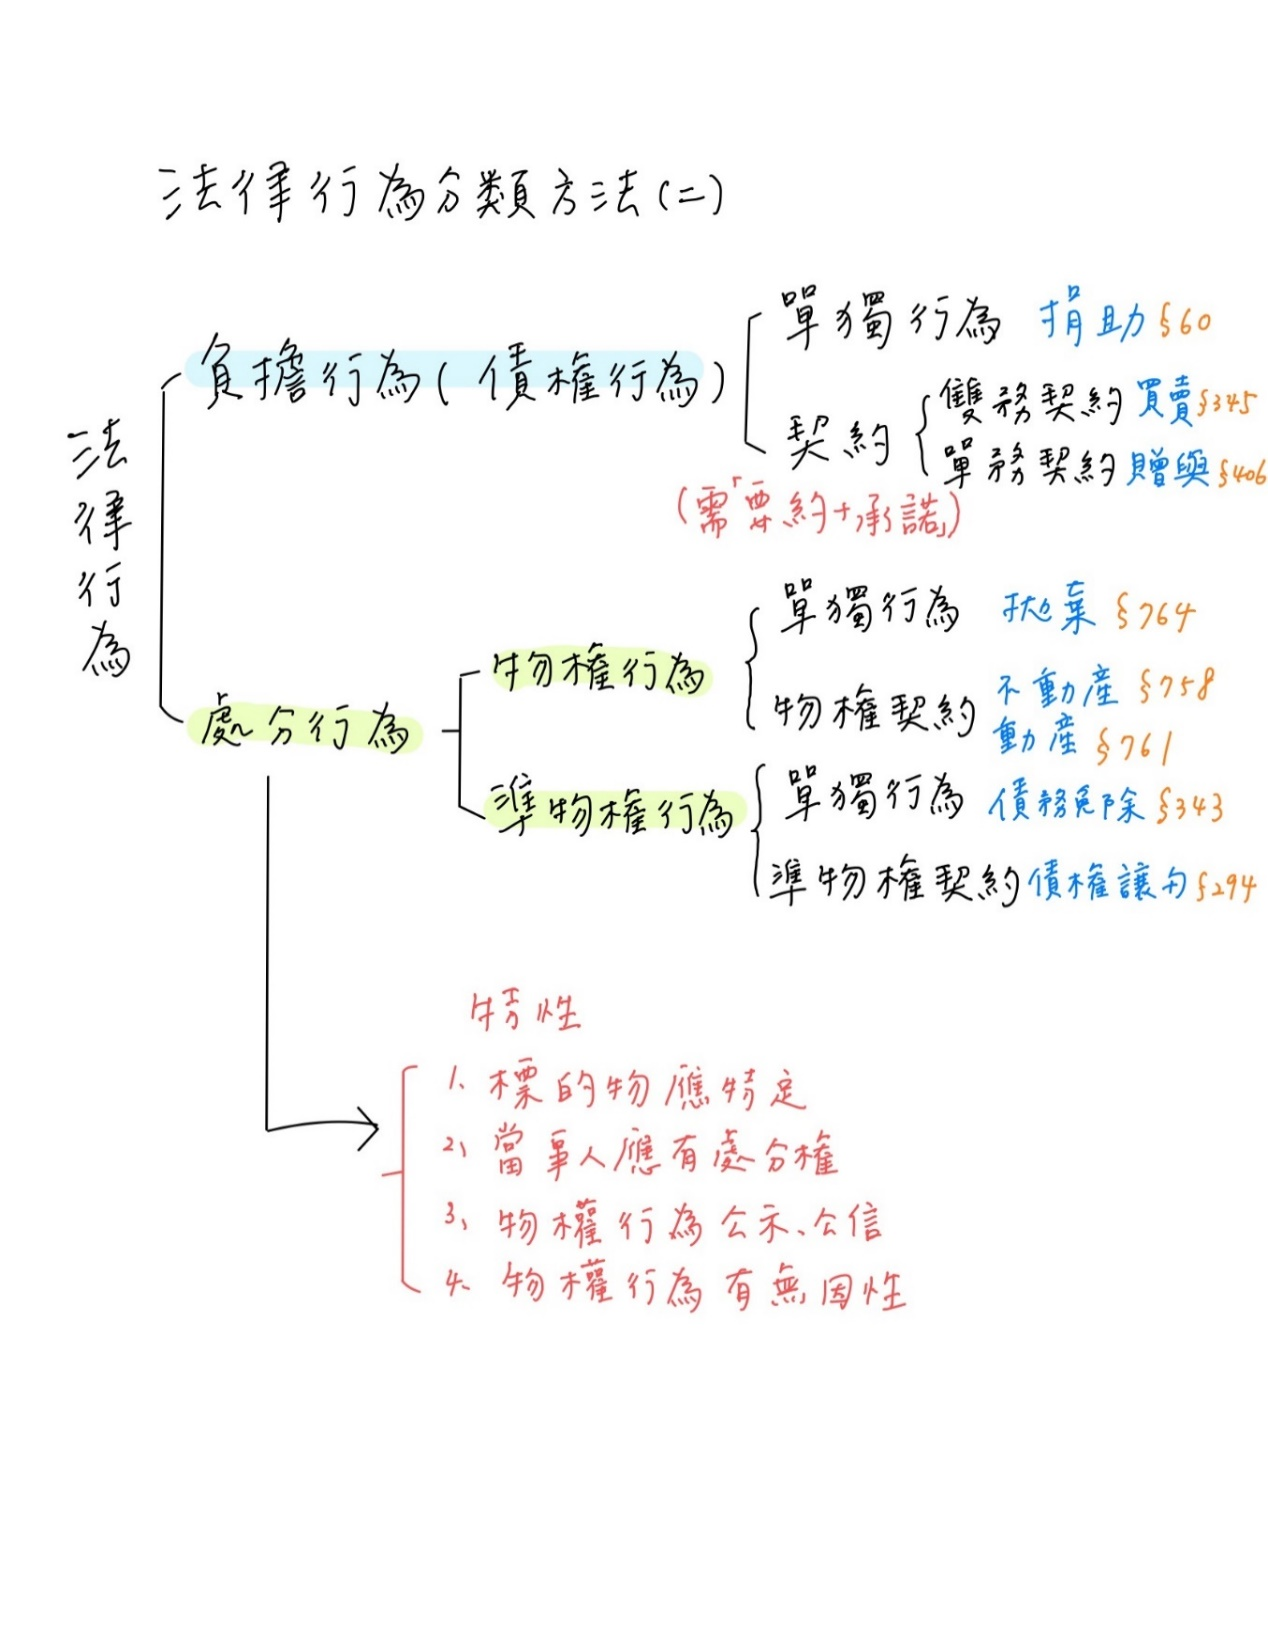 法律行為分類方法(二)
法律行為
負擔行為(債權行為)
單獨行為 捐助§60
契約
雙務契約 買賣§345
單務契約 贈與§406
(需「要約+承諾」)
處分行為
物權行為
單獨行為 拋棄§764
物權契約
不動產§758
動產§761
準物權行為
單獨行為 債務免除§343
準物權契約 債權讓与§294
特性
1、標的物應特定
2、當事人應有處分權
3、物權行為公示、公信
4、物權行為有無因性